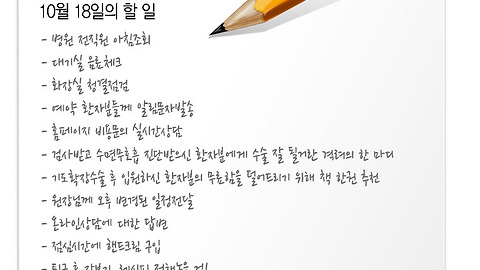 10월 18일의 할 일
- 병원 전직원 아침조회
- 대기실 음료체크
- 화장실 청결점검
- 예약 환자분들께 알림문자발송
- 홈페이지 비용문의 실시간상담
- 검사받고 수면무호흡 진단받으신 환자분에게 수술 잘 될거란 격려의 한 마디
- 기도확장수술 후 입원하신 환자분의 무료함을 덜어드리기 위해 책 한권 추천
- 원장님께 오후 변경된 일정전달
- 온라인상담에 대한 답변
- 점심시간에 핸드크림 구입
- 퇴근 후 장보기